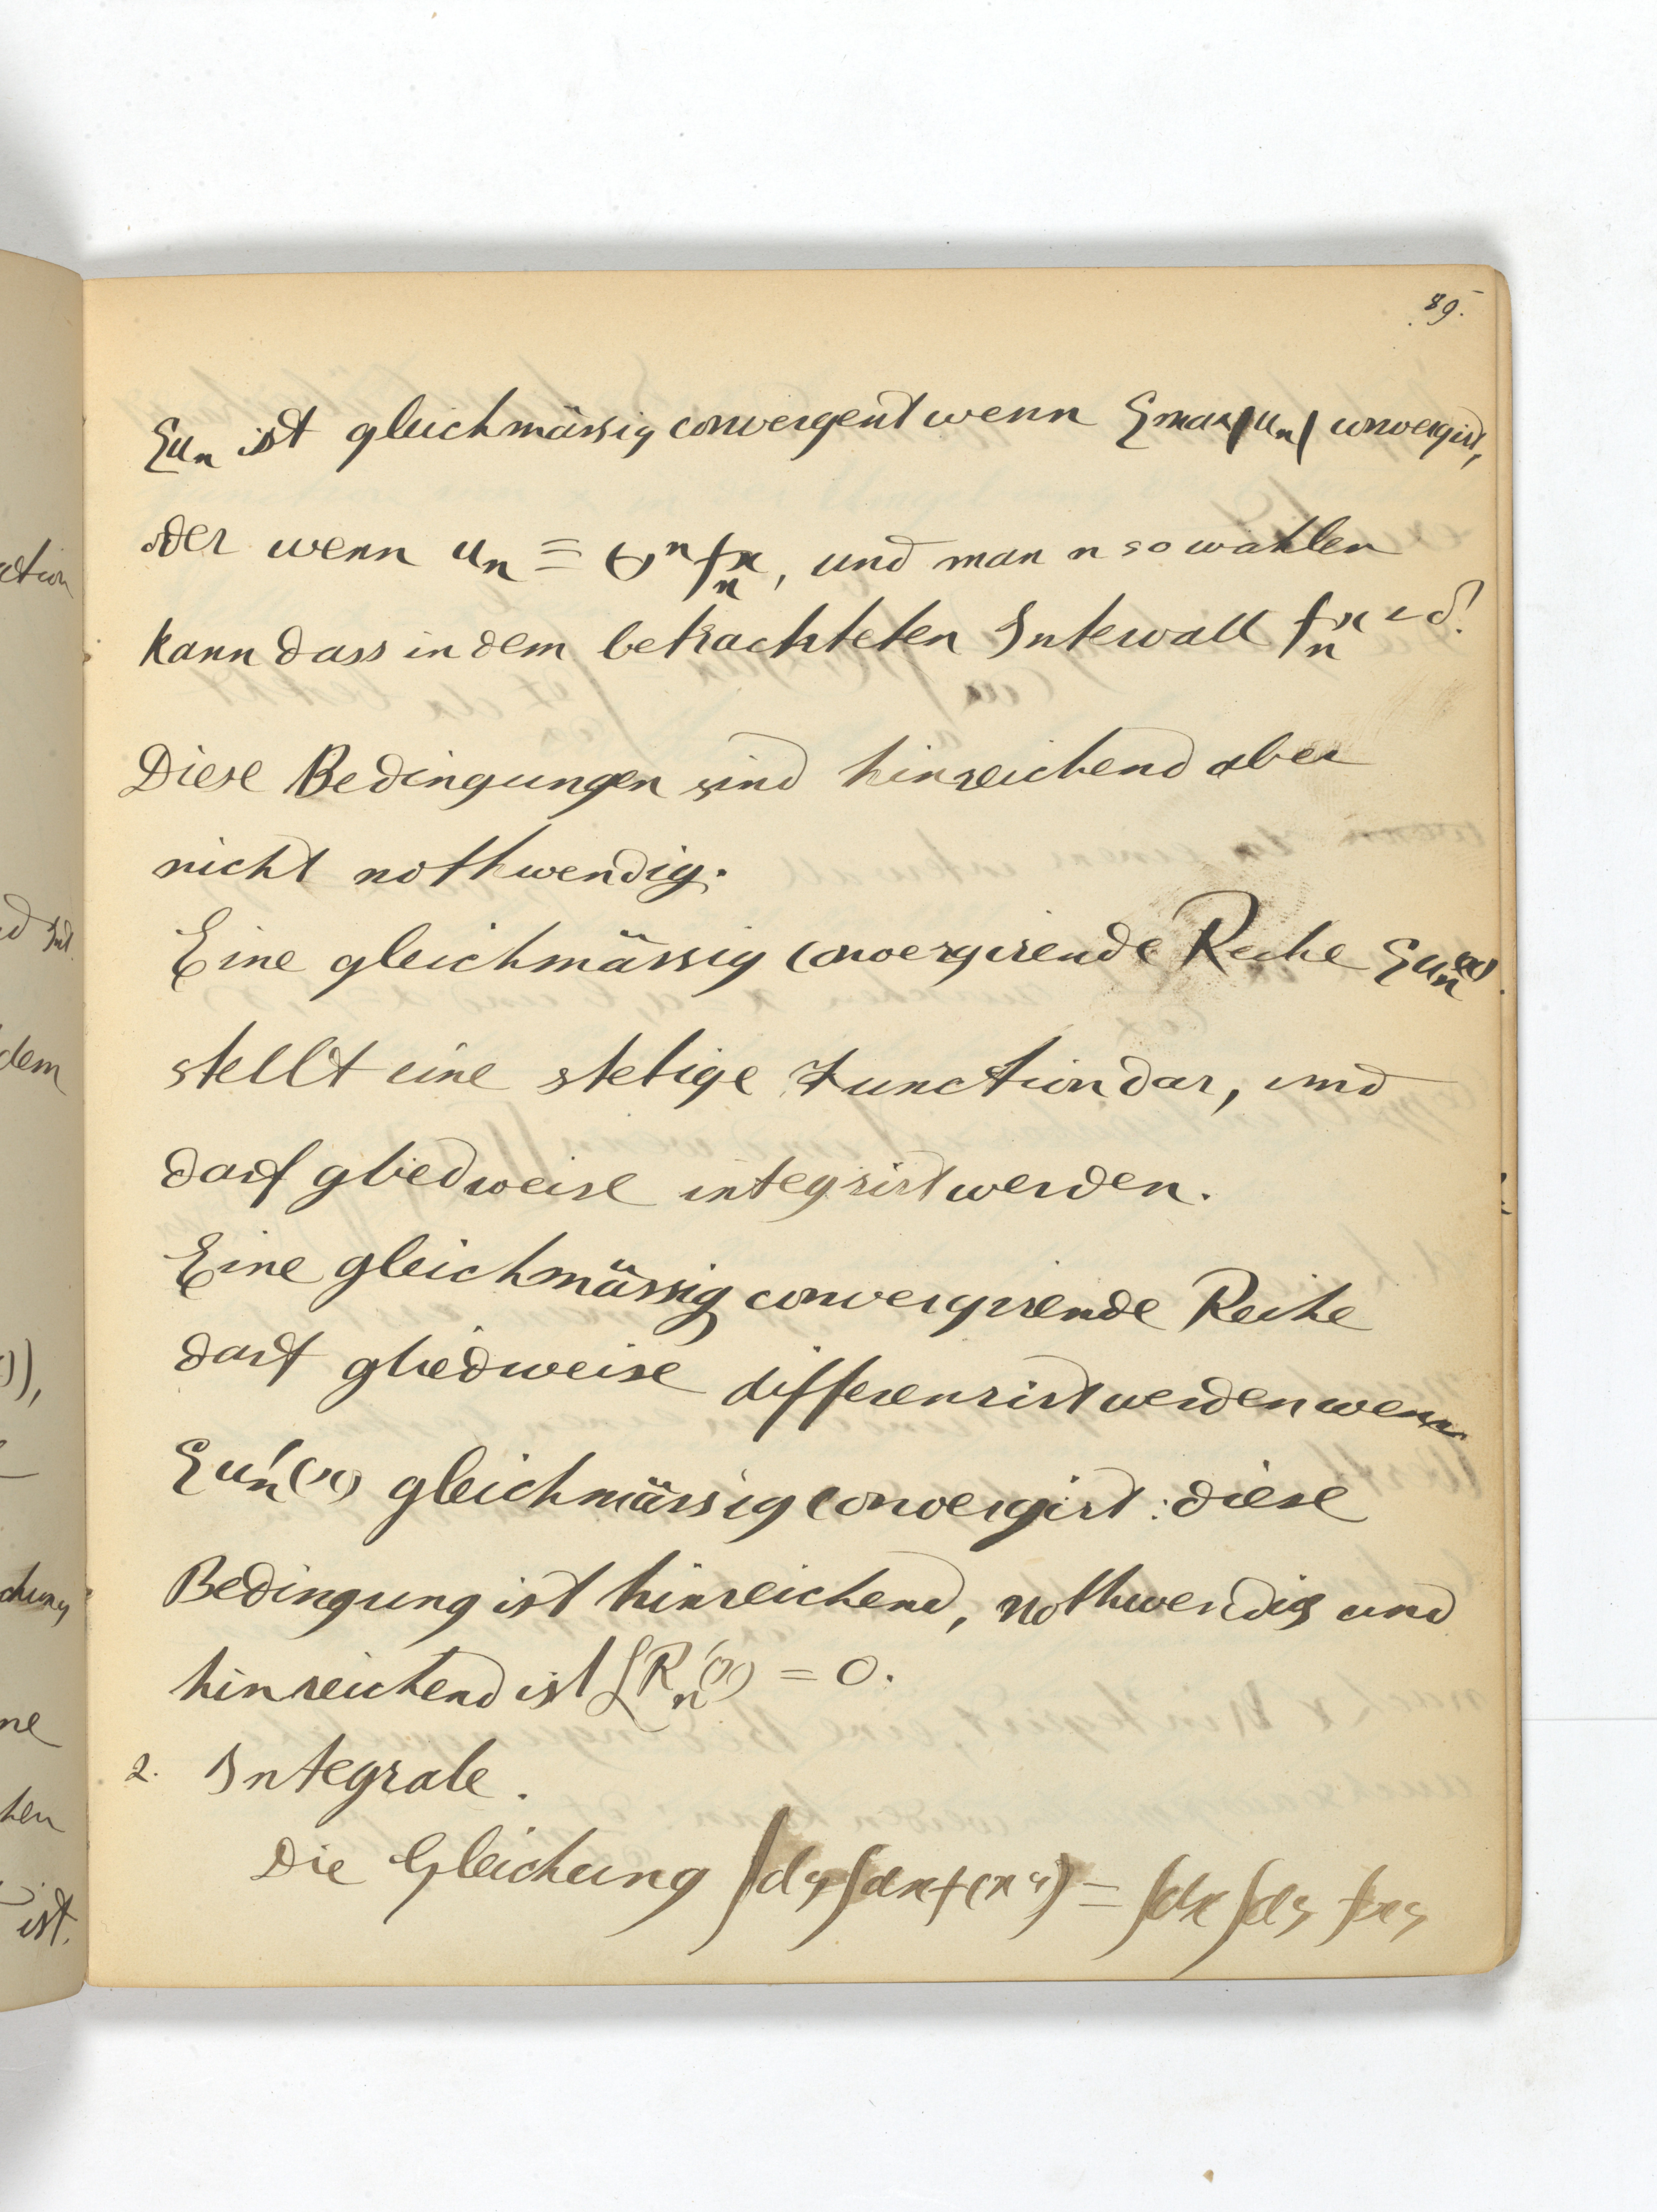 89.
Σu_n ist gleichmässig convergent wenn Σmax|u_n| convergirt,
oder wenn u_n =
, und man n so wählen
kann dass in dem betrachteten Intervall f_n x
Diese Bedingungen sind hinreichend aber
nicht nothwendig.
Eine gleichmässig convergirende Reihe Σu_n(x)
stellt eine stetige Function dar, und
darf gliedweise integrirt werden.
Eine gleichmässig convergirende Reihe
darf gliedweise differenzirt werden wenn
Σu'_n(x) gleichmässig convergirt: diese
Bedingung ist hinreichend, nothwendig und
hinreichend ist LR'_n(x) = 0.
2. Integrale.
Die Gleichung ∫dy∫dx f(xy) = ∫dx∫dy fxy
ction
dem
ne
ist.